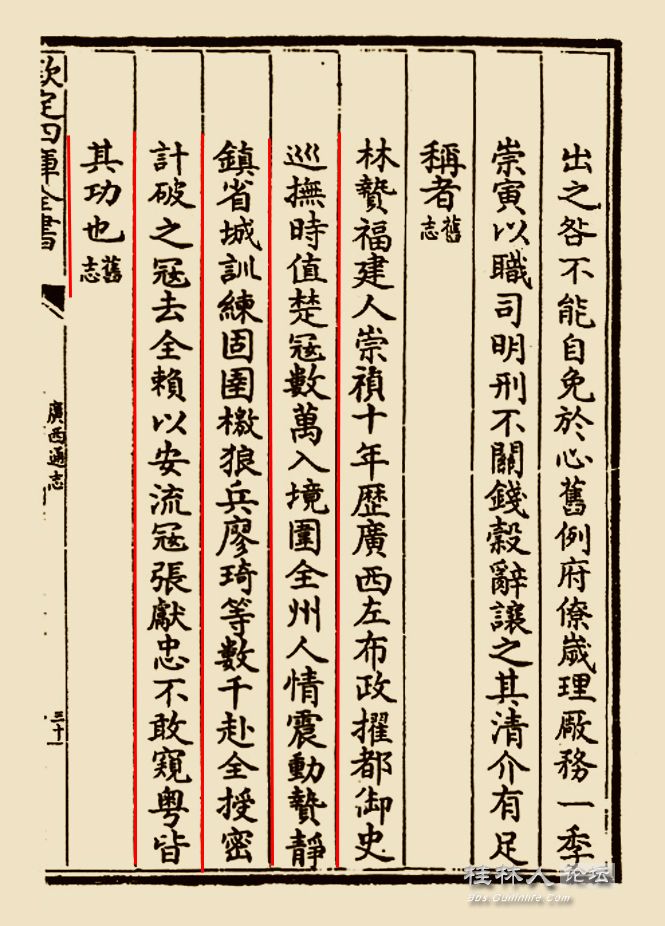 出之咎不能自免於心舊例府僚歲理厰務一季
崇寅以職司明刑不關錢穀辭讓之其清介有足
稱者舊志
林贄福建人崇禎十年歴廣西左布政擢都御史
巡撫時值楚冦數萬入境圍全州人情震動贄靜
鎮省城訓練固圉檄狼兵廖琦等數千赴全授密
計破之冦去全賴以安流冦張獻忠不敢窺粤皆
其功也舊志
欽定四庫全書
廣西通志
三十一
桂林人论坛
bbs.Guilinlife.com